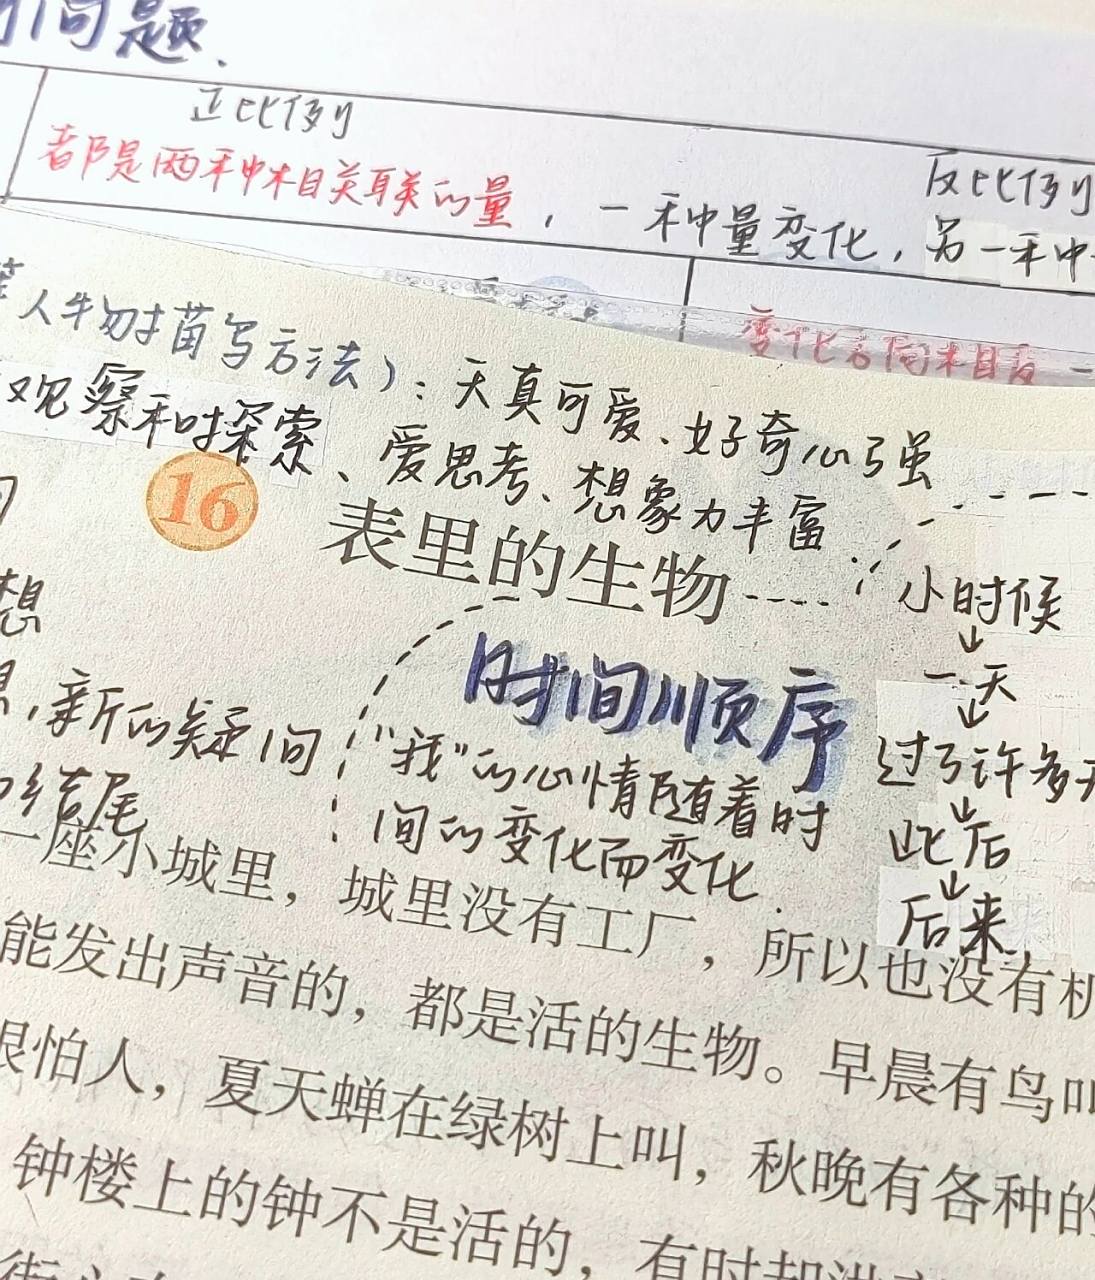 问题.
正比例
反比例
都是两种相关联的量，一种量变化，另一种
变化方向相反
人物描写方法）：天真可爱、好奇心强
观察和探索、爱思考、想象力丰富
16 表里的生物
小时候
↓
一天
↓
过了许多天
↓
此后
↓
后来.
想
时间顺序
，新的疑问
"我"的心情随着时
间的变化而变化.
结尾
一座小城里，城里没有工厂，所以也没有机
能发出声音的，都是活的生物。早晨有鸟叫
很怕人，夏天蝉在绿树上叫，秋晚有各种的
钟楼上的钟不是活的，有时却